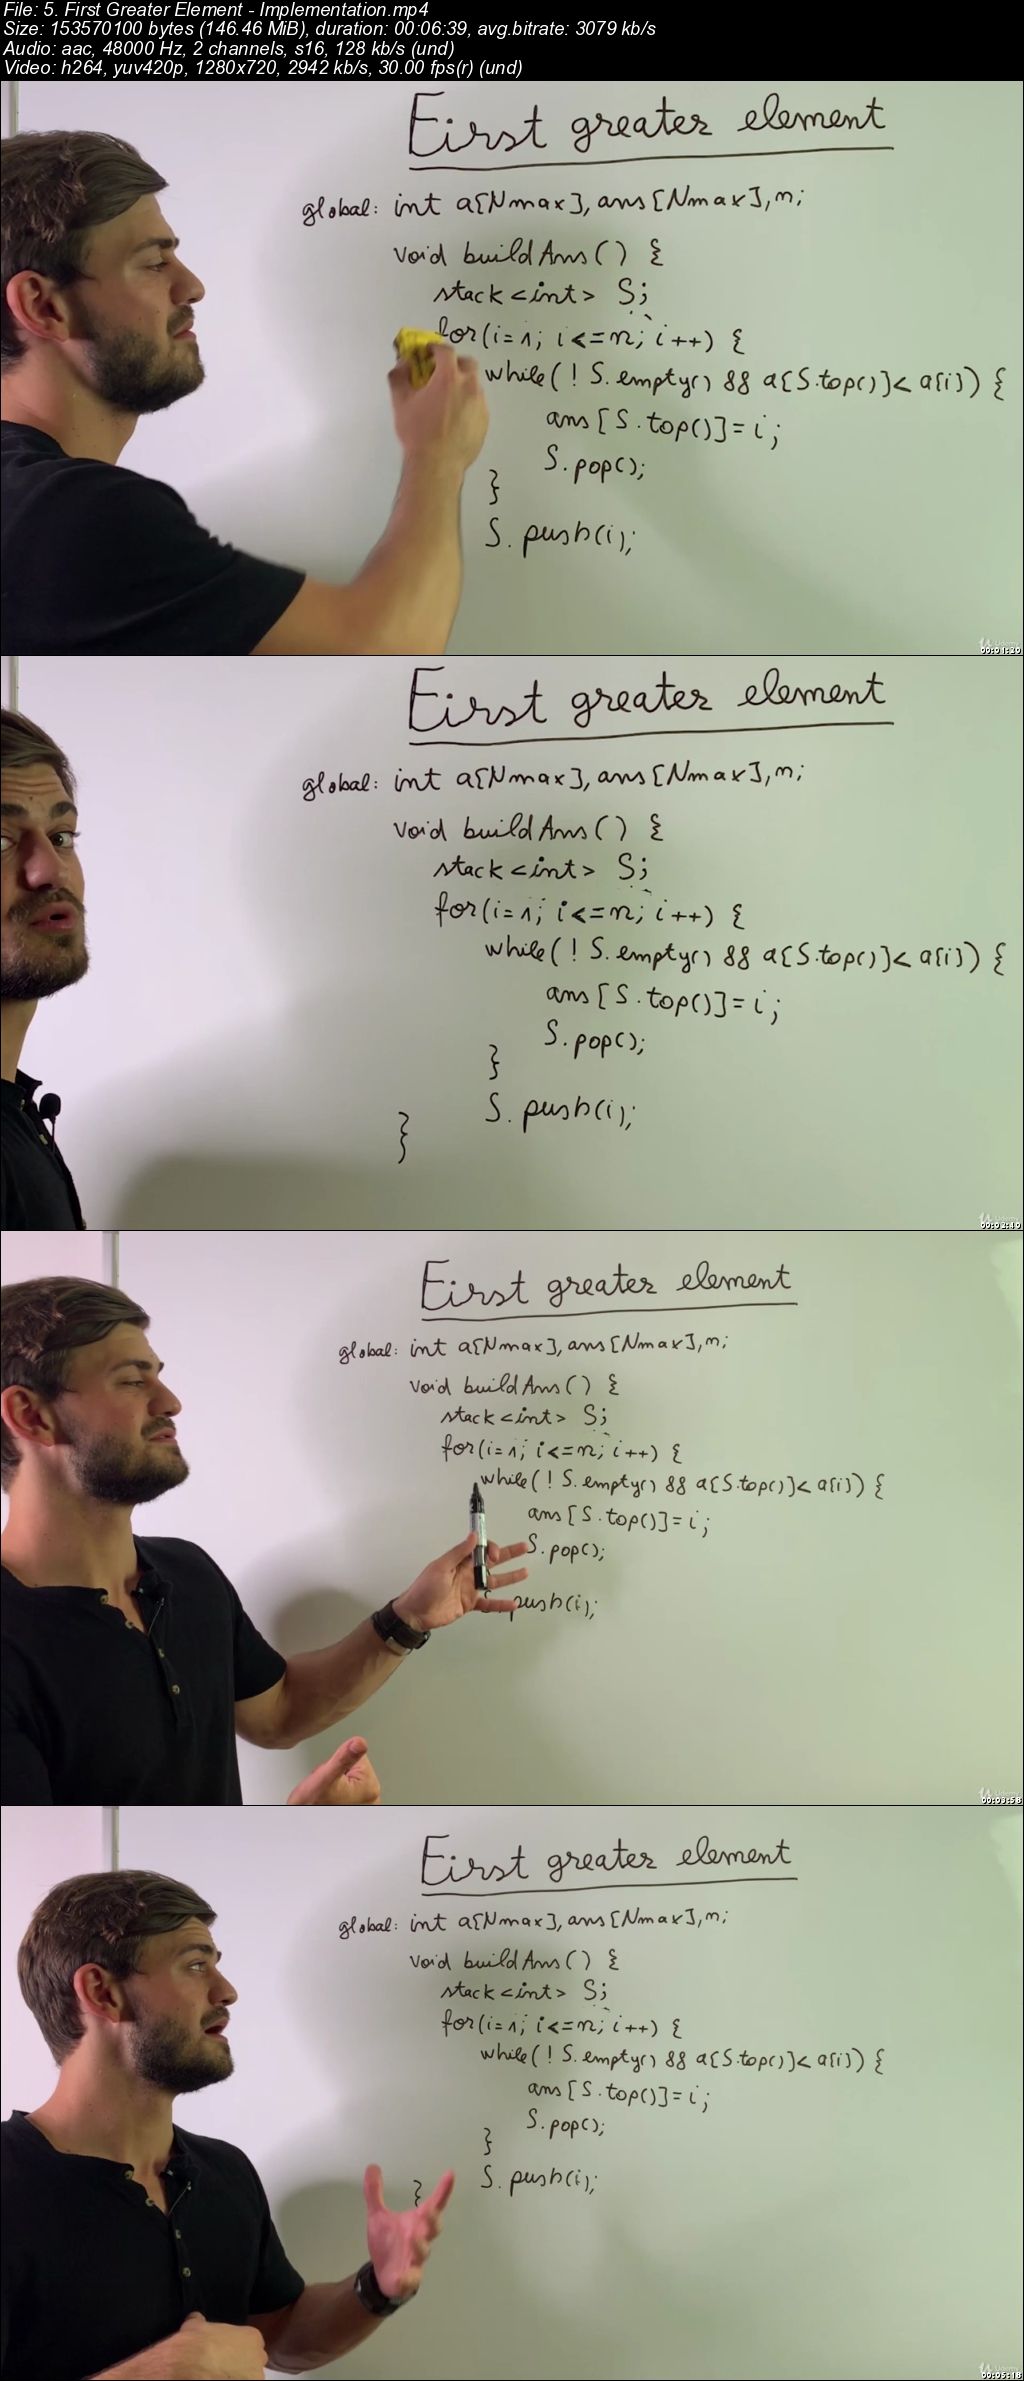 File: 5. First Greater Element - Implementation.mp4
Size: 153570100 bytes (146.46 MiB), duration: 00:06:39, avg.bitrate: 3079 kb/s
Audio: aac, 48000 Hz, 2 channels, s16, 128 kb/s (und)
Video: h264, yuv420p, 1280x720, 2942 kb/s, 30.00 fps(r) (und)
First greater element
global: int a[Nmax], ans[Nmax], n;
void buildAns() {
stack<int> S;
for(i=1; i<=n; i++) {
while(! S.empty() && a[S.top()]< a[i]) {
ans[S.top()]=i;
S.pop();
}
S.push(i);
Udemy
00:01:20
First greater element
global: int a[Nmax], ans[Nmax], n;
void buildAns() {
stack<int> S;
for(i=1; i<=n; i++) {
while(! S.empty() && a[S.top()]< a[i]) {
ans[S.top()]=i;
S.pop();
}
S.push(i);
}
Udemy
00:02:40
First greater element
global: int a[Nmax], ans[Nmax], n;
void buildAns() {
stack<int> S;
for(i=1; i<=n; i++) {
while(! S.empty() && a[S.top()]< a[i]) {
ans[S.top()]=i;
S.pop();
S.push(i);
Udemy
00:03:58
First greater element
global: int a[Nmax], ans[Nmax], n;
void buildAns() {
stack<int> S;
for(i=1; i<=n; i++) {
while(! S.empty() && a[S.top()]< a[i]) {
ans[S.top()]=i;
S.pop();
}
S.push(i);
}
Udemy
00:05:18